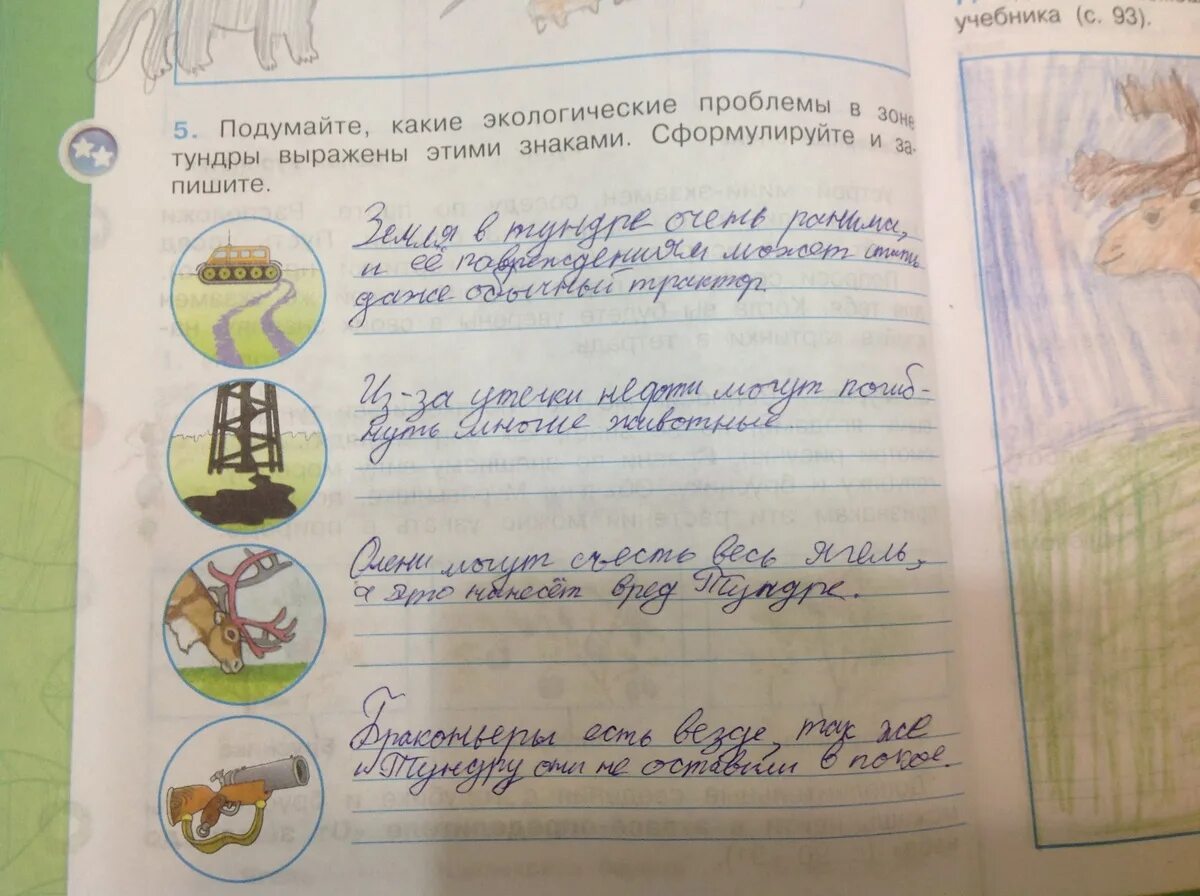 учебника (с. 93).
5. Подумайте, какие экологические проблемы в зоне
тундры выражены этими знаками. Сформулируйте и за-
пишите.
Земля в тундре очень ранима,
и её павреждениям может стать
даже обычный трактор.
Из-за утечки нефти могут погиб-
нуть многие животные.
Олени могут съесть весь ягель,
а это нанесёт вред Тундре.
Браконьеры есть везде, так же
и Тундру они не оставили в покое.